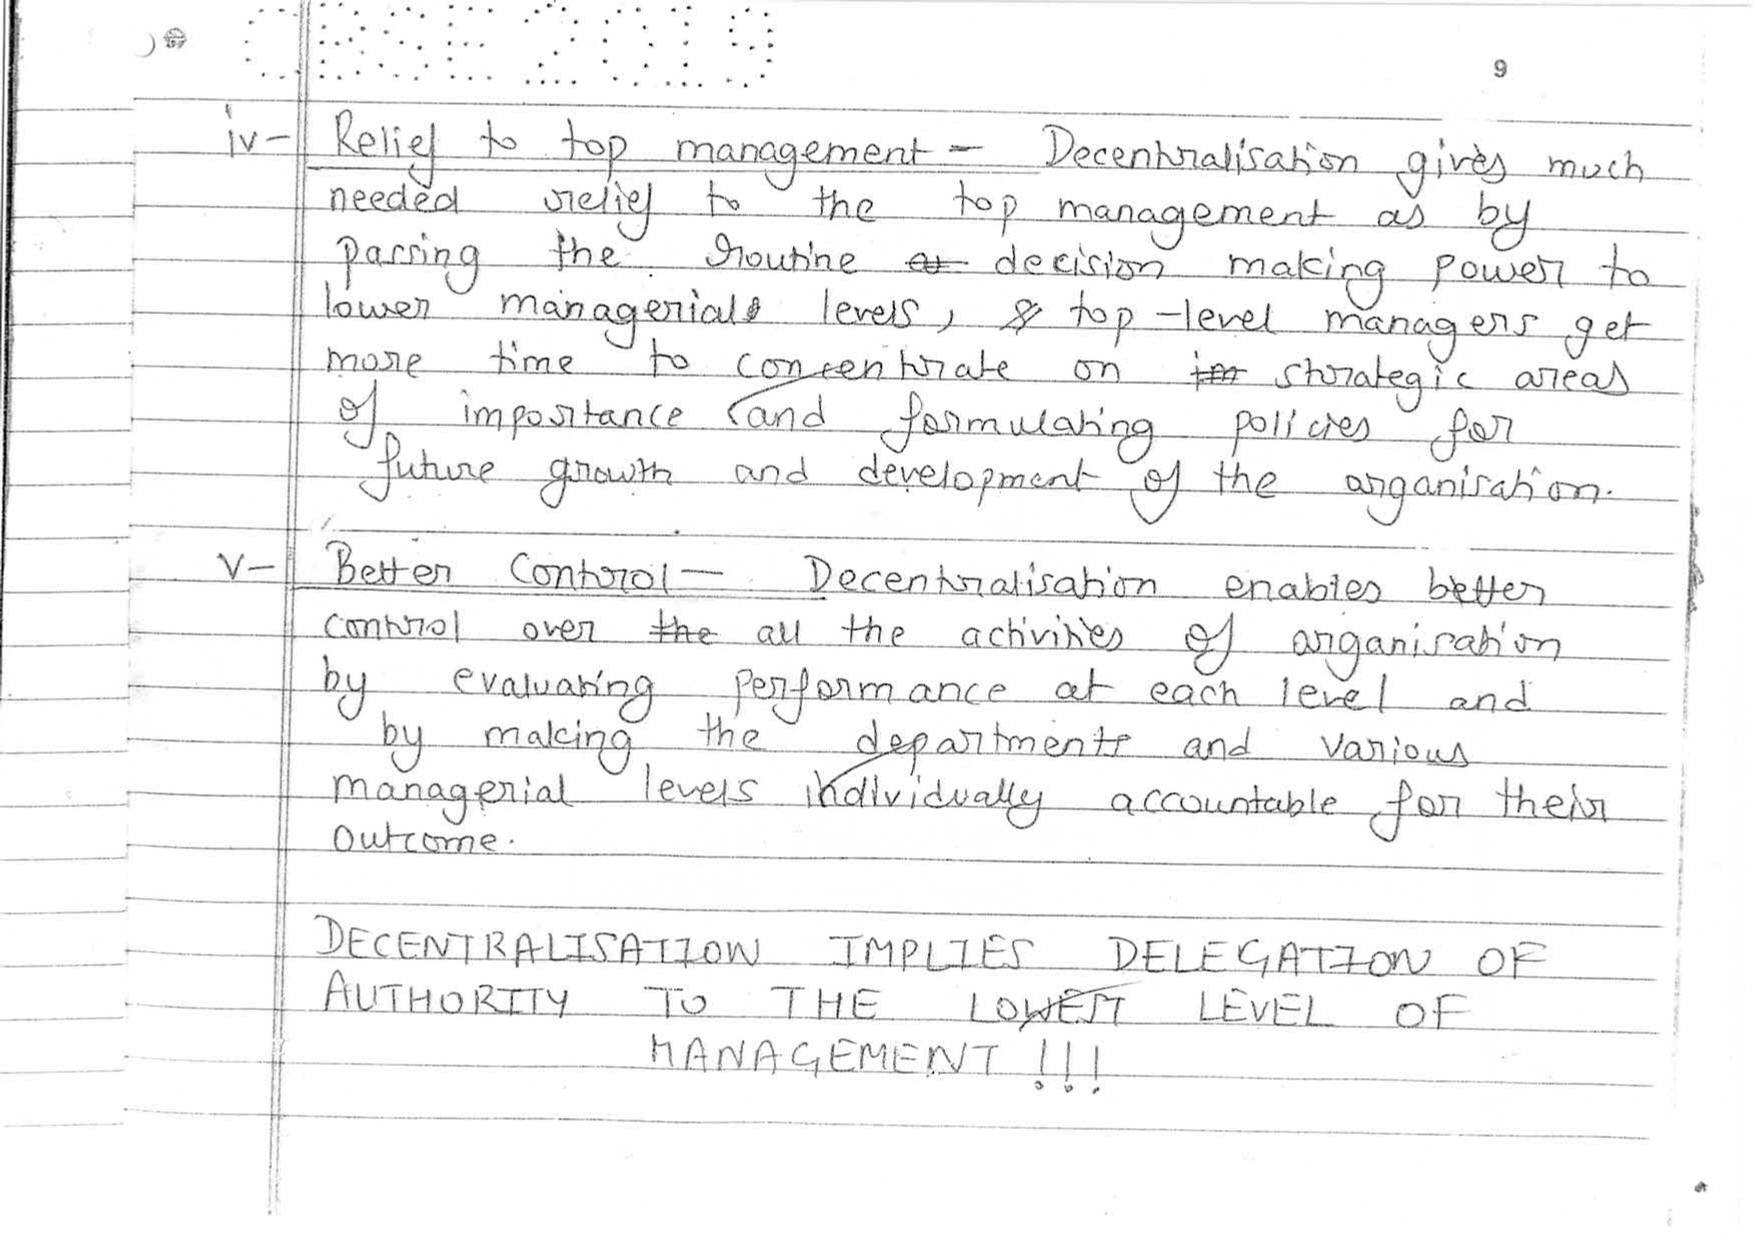 CBSE 2019
9
iv- Relief to top management - Decentralisation gives much
needed relief to the top management as by
passing the routine decision making power to
lower managerial levels, top-level managers get
more time to concentrate on strategic areas
of importance and formulating policies for
future growth and development of the organisation.
v- Better Control - Decentralisation enables better
control over the all the activities of organisation
by evaluating performance at each level and
by making the departments and various
managerial levels individually accountable for their
outcome.
DECENTRALISATION IMPLIES DELEGATION OF
AUTHORITY TO THE LOWEST LEVEL OF
MANAGEMENT !!!